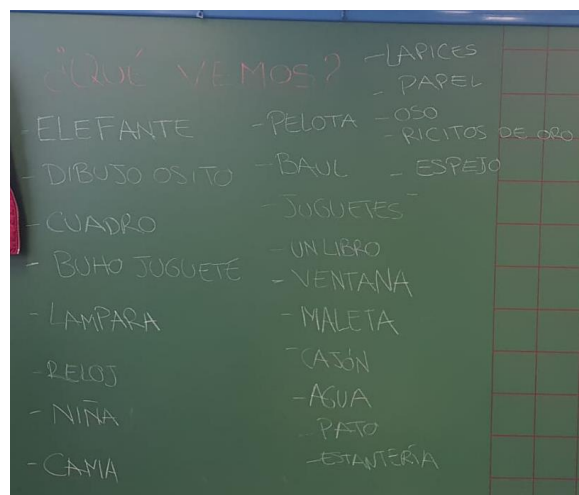 ¿QUÉ VEMOS?
- ELEFANTE
- DIBUJO OSITO
- CUADRO
- BUHO JUGUETE
- LAMPARA
- RELOJ
- NIÑA
- CAMA
- PELOTA
- BAUL
- JUGUETES
- UN LIBRO
- VENTANA
- MALETA
- CAJÓN
- AGUA
- PATO
- ESTANTERÍA
- LAPICES
- PAPEL
- OSO
- RICITOS DE ORO
- ESPEJO